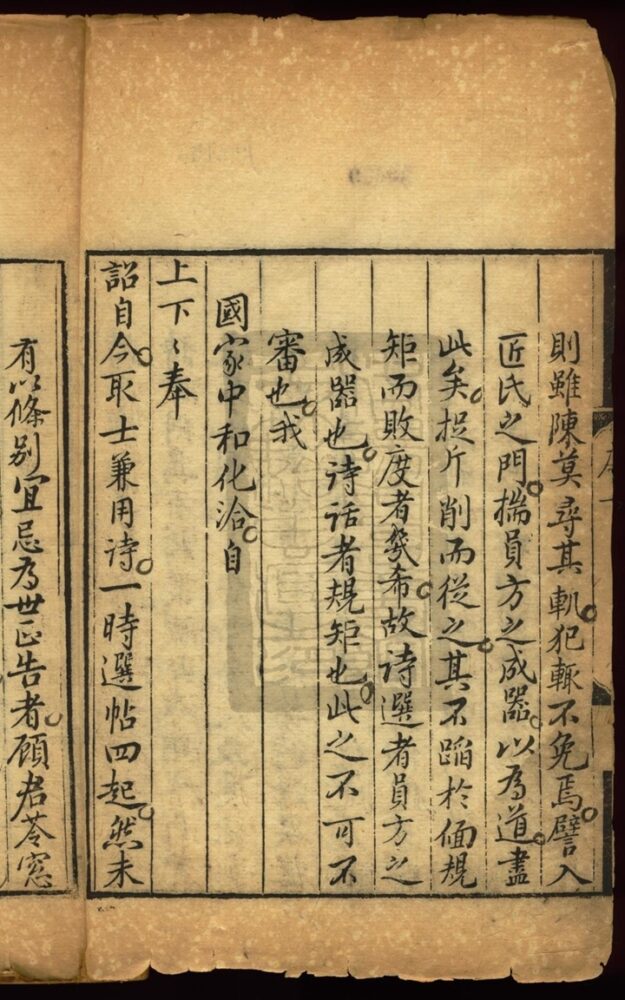 則雖陳莫尋其軏犯輒不免焉譬入
匠氏之門揣員方之成器以為道盡
此矣捉斤削而從之其不蹈於偭規
矩而敗度者幾希故诗選者員方之
成器也诗话者規矩也此之不可不
審也我
國家中和化洽自
上下〻奉
詔自今取士兼用诗一時選帖四起然未
有以條别宜忌為世正告者顧君苓窓